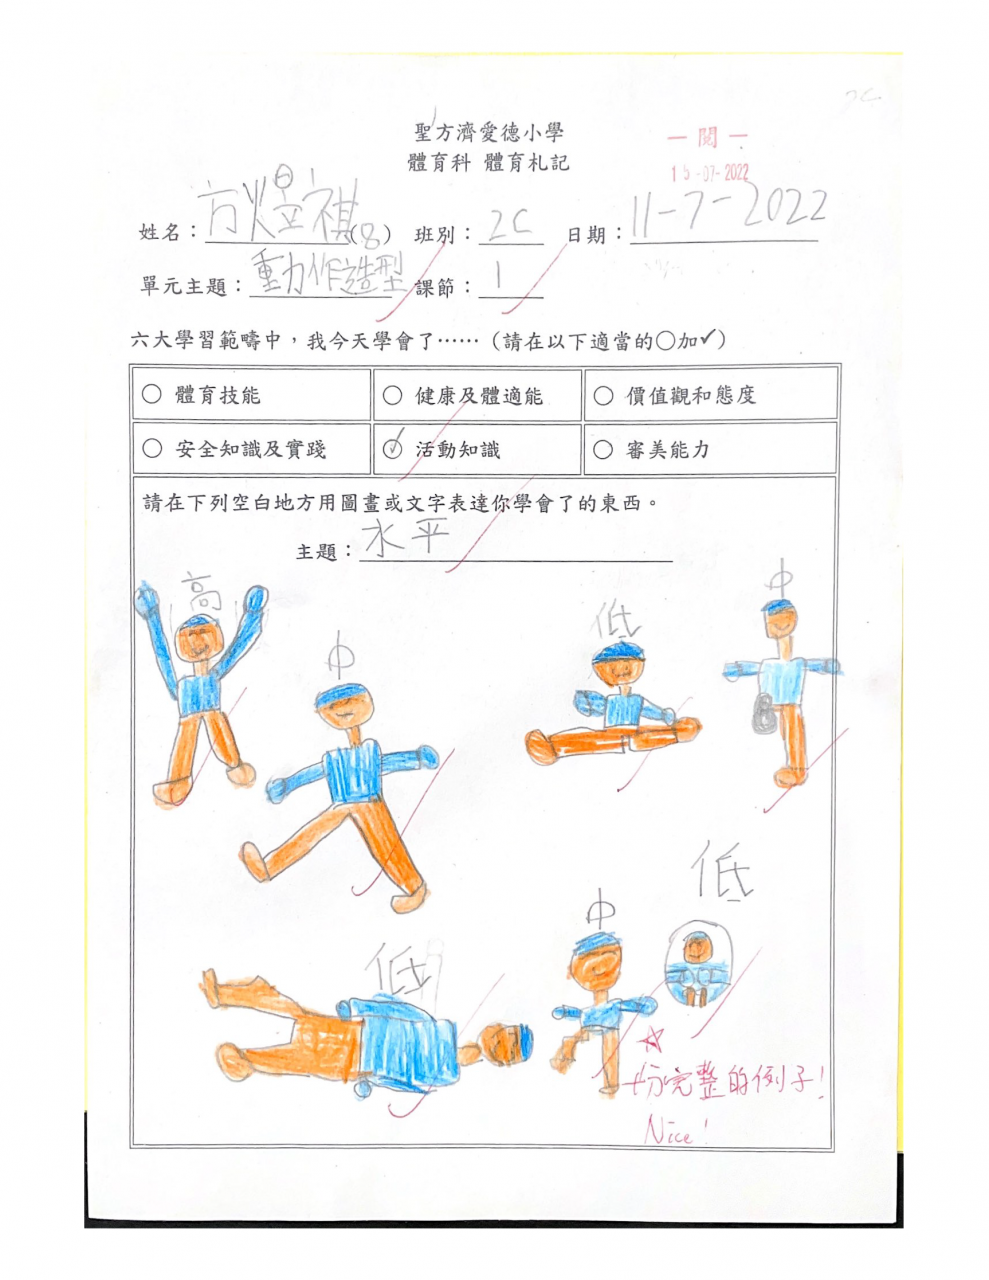 2C
聖方濟愛德小學
體育科 體育札記
一閱一
15-07-2022
姓名：方煜祺(8) 班別：2C 日期：11-7-2022
單元主題：動作造型 課節：1
六大學習範疇中，我今天學會了……（請在以下適當的○加✓）
○ 體育技能 ○ 健康及體適能 ○ 價值觀和態度
○ 安全知識及實踐 ✓ 活動知識 ○ 審美能力
請在下列空白地方用圖畫或文字表達你學會了的東西。
主題：水平
高
中
低
中
低
中
低
一份完整的例子！
Nice！